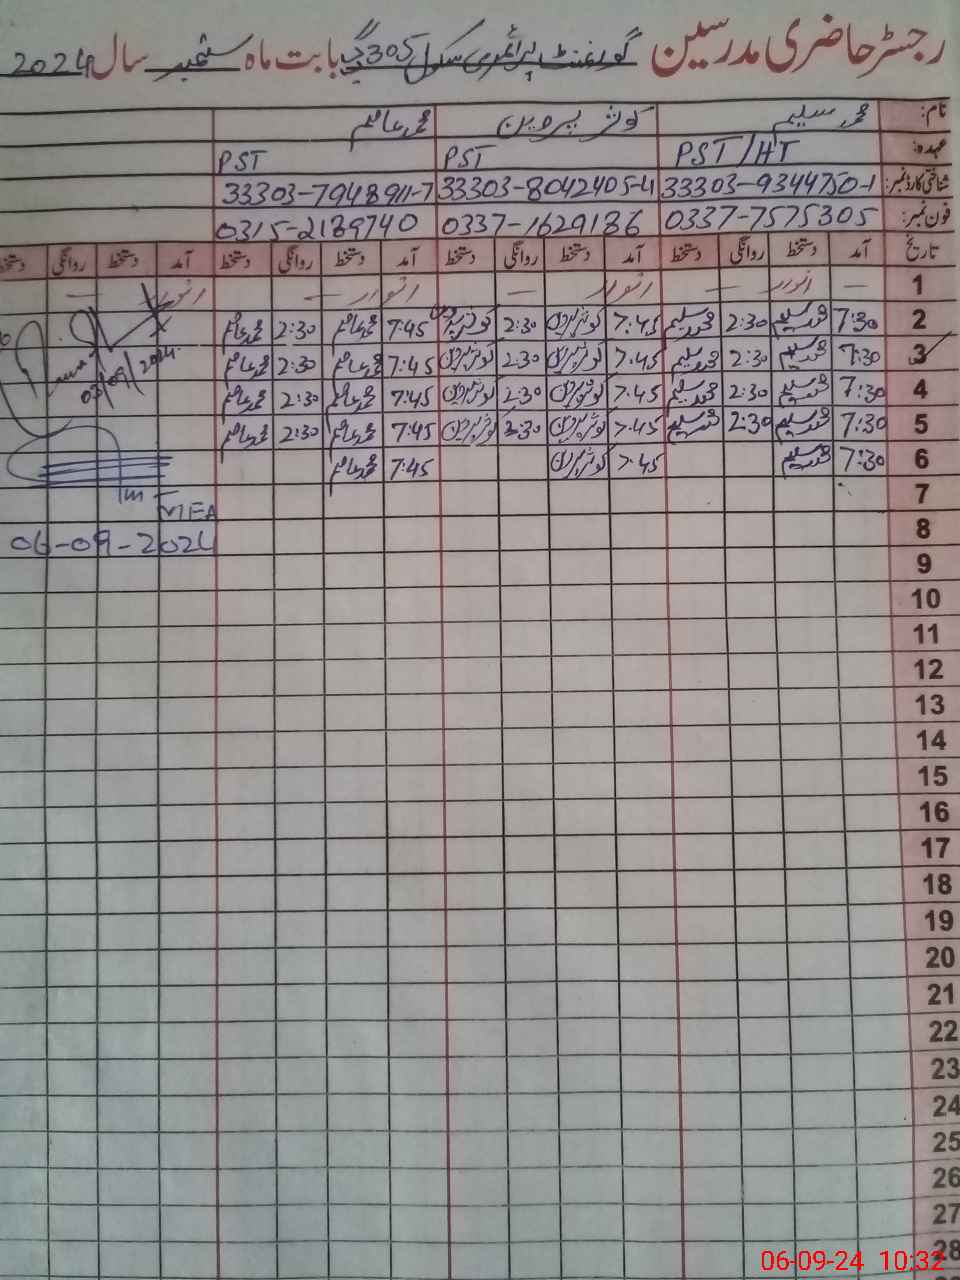 رجسٹر حاضری مدرسین گورنمنٹ پرائمری سکول 305 گ ب بابت ماہ ستمبر سال 2024
نام: محمد سلیم کوثر پروین محمد عاصم
عہدہ: PST/HT PST PST
شناختی کارڈ نمبر: 33303-9344750-1 33303-8042405-4 33303-7948911-7
فون نمبر: 0337-7575305 0337-1629186 0315-2189740
تاریخ آمد دستخط روانگی دستخط آمد دستخط روانگی دستخط آمد دستخط روانگی دستخط آمد دستخط روانگی دستخط
1 — اتوار — اتوار — اتوار — اتوار —
2 7:30 محمد سلیم 2:30 محمد سلیم 7:45 کوثر پروین 2:30 کوثر پروین 7:45 محمد عاصم 2:30 محمد عاصم
3 7:30 محمد سلیم 2:30 محمد سلیم 7:45 کوثر پروین 2:30 کوثر پروین 7:45 محمد عاصم 2:30 محمد عاصم 03/09/2024
4 7:30 محمد سلیم 2:30 محمد سلیم 7:45 کوثر پروین 2:30 کوثر پروین 7:45 محمد عاصم 2:30 محمد عاصم
5 7:30 محمد سلیم 2:30 محمد سلیم 7:45 کوثر پروین 2:30 کوثر پروین 7:45 محمد عاصم 2:30 محمد عاصم
6 7:30 محمد سلیم 7:45 کوثر پروین 7:45 محمد عاصم
7 MEA
8 06-09-2024
9
10
11
12
13
14
15
16
17
18
19
20
21
22
23
24
25
26
27
28
06-09-24 10:32